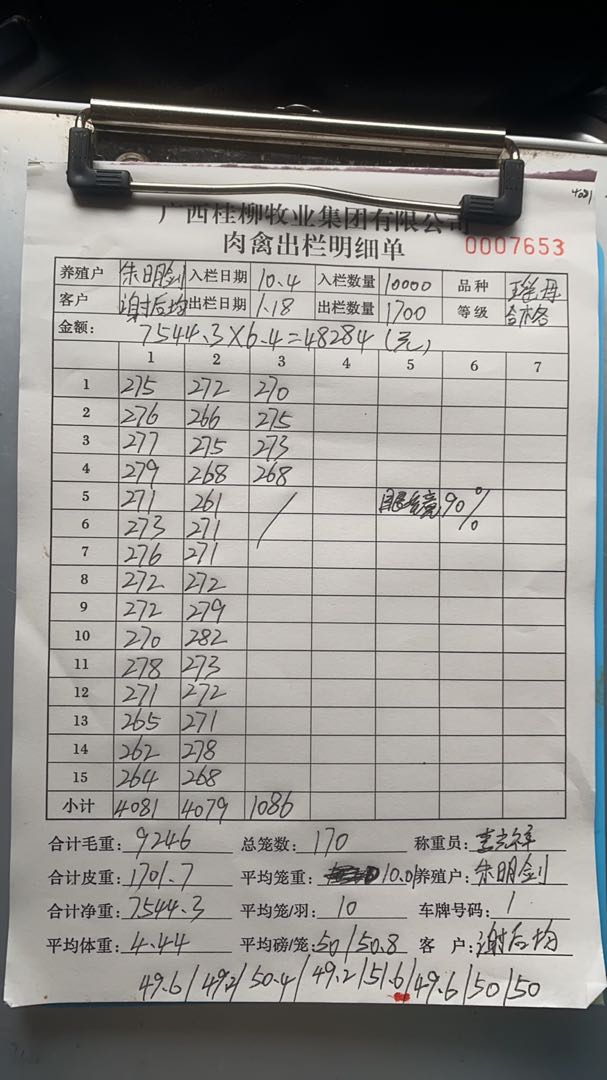 4081
广西桂柳牧业集团有限公司
肉禽出栏明细单 0007653
养殖户 朱明剑 入栏日期 10.4 入栏数量 10000 品种
客户 谢后均 出栏日期 1.18 出栏数量 1700 等级 合格
金额: 7544.3×6.4=48284(元)
1 2 3 4 5 6 7
1 275 272 270
2 276 266 275
3 277 275 273
4 279 268 268
5 271 261 / 眼镜90%
6 273 271
7 276 271
8 272 272
9 272 279
10 270 282
11 278 273
12 271 272
13 265 271
14 262 278
15 264 268
小计 4081 4079 1086
合计毛重: 9246 总笼数: 170 称重员:
合计皮重: 1701.7 平均笼重: 10.01 养殖户: 朱明剑
合计净重: 7544.3 平均笼/羽: 10 车牌号码: 1
平均体重: 4.44 平均磅/笼: 50/50.8 客 户: 谢后均
49.6/49.2/50.4/49.2/51.6/49.6/50/50